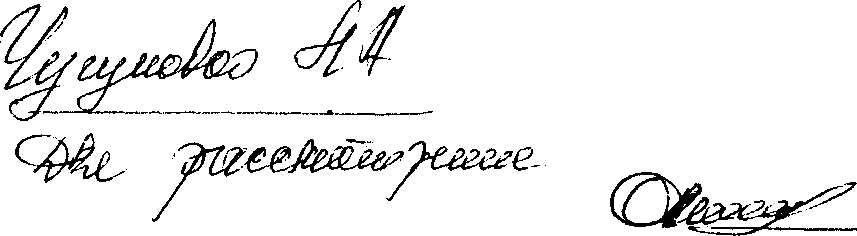 Чугуновой НА
Для рассмотрения